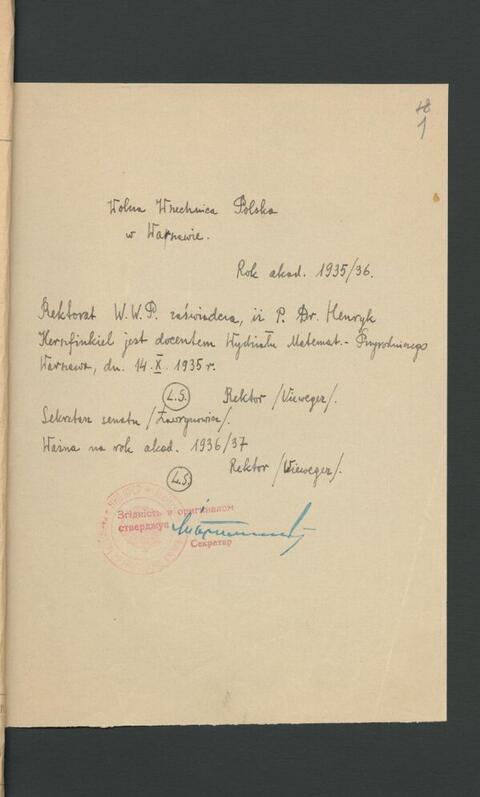 18
1
Wolna Wszechnica Polska
w Warszawie.
Rok akad. 1935/36.
Rektorat W.W.P. zaświadcza, iż P. Dr. Henryk
Herszfinkiel jest docentem Wydziału Matemat.- Przyrodniczego
Warszawa, dn. 14.X.1935 r.
L.S. Rektor /Vieweger/.
Sekretarz senatu /Ławrynowicz/.
Ważna na rok akad. 1936/37
L.S. Rektor /Vieweger/.
Згідність з оригіналом
стверджує
Секретар